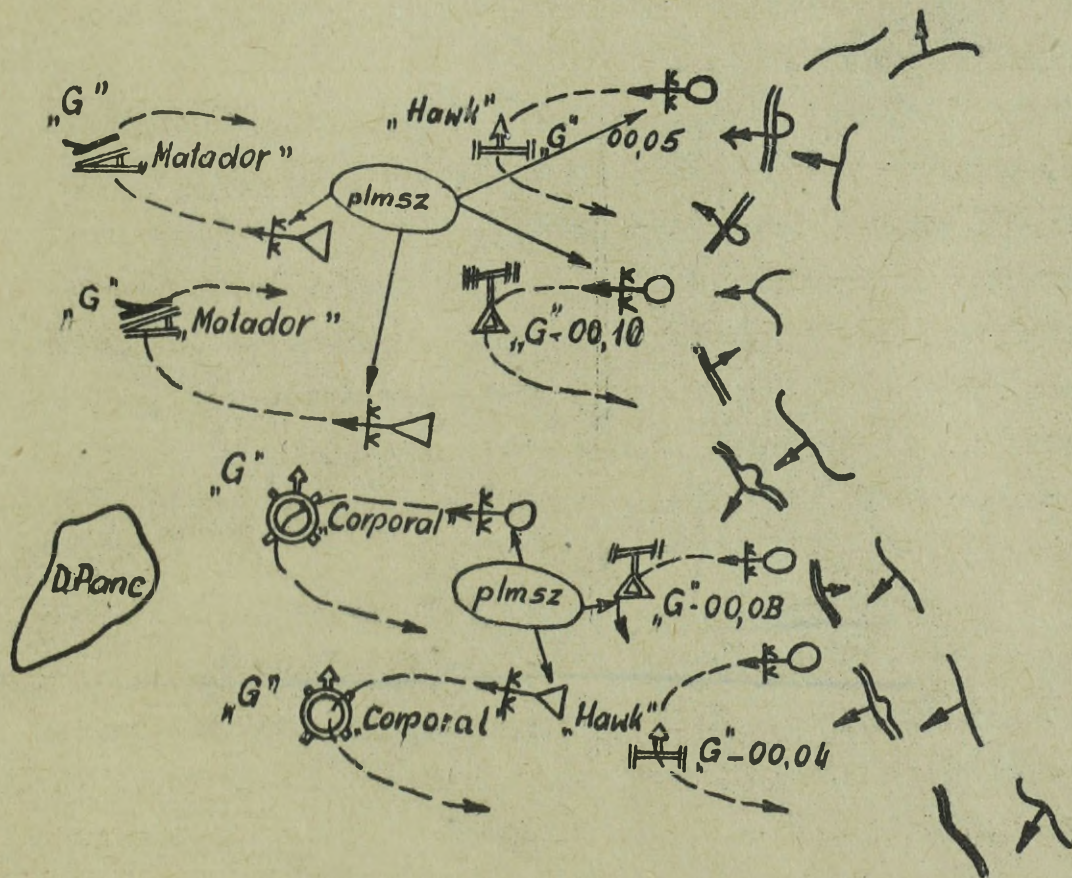 „G”
„Matador”
„Hawk”
„G” 00,05
plmsz
„G”
„Matador”
„G”-00,10
„G”
„Corporal”
D.Panc
plmsz
„G”-00,08
„G”
„Corporal”
„Hawk”
„G”-00,04